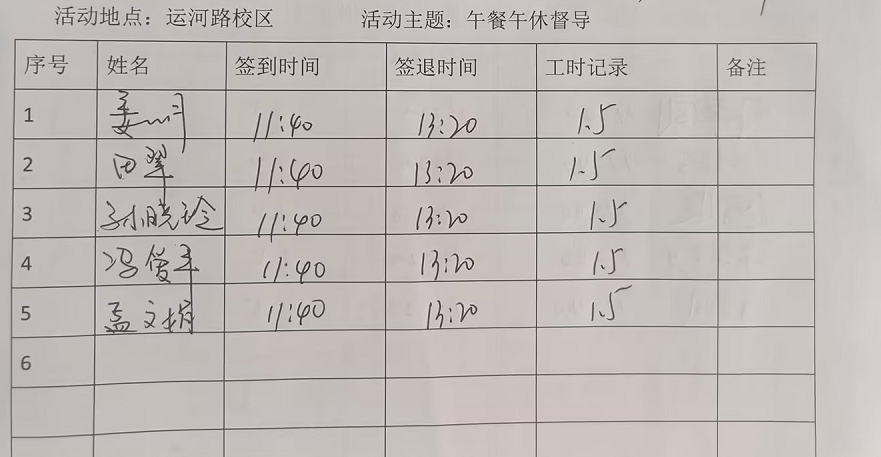 活动地点：运河路校区 活动主题：午餐午休督导
序号 姓名 签到时间 签退时间 工时记录 备注
1 姜 11:40 13:20 1.5
2 田翠 11:40 13:20 1.5
3 孙晓玲 11:40 13:20 1.5
4 冯爱 11:40 13:20 1.5
5 孟文娟 11:40 13:20 1.5
6